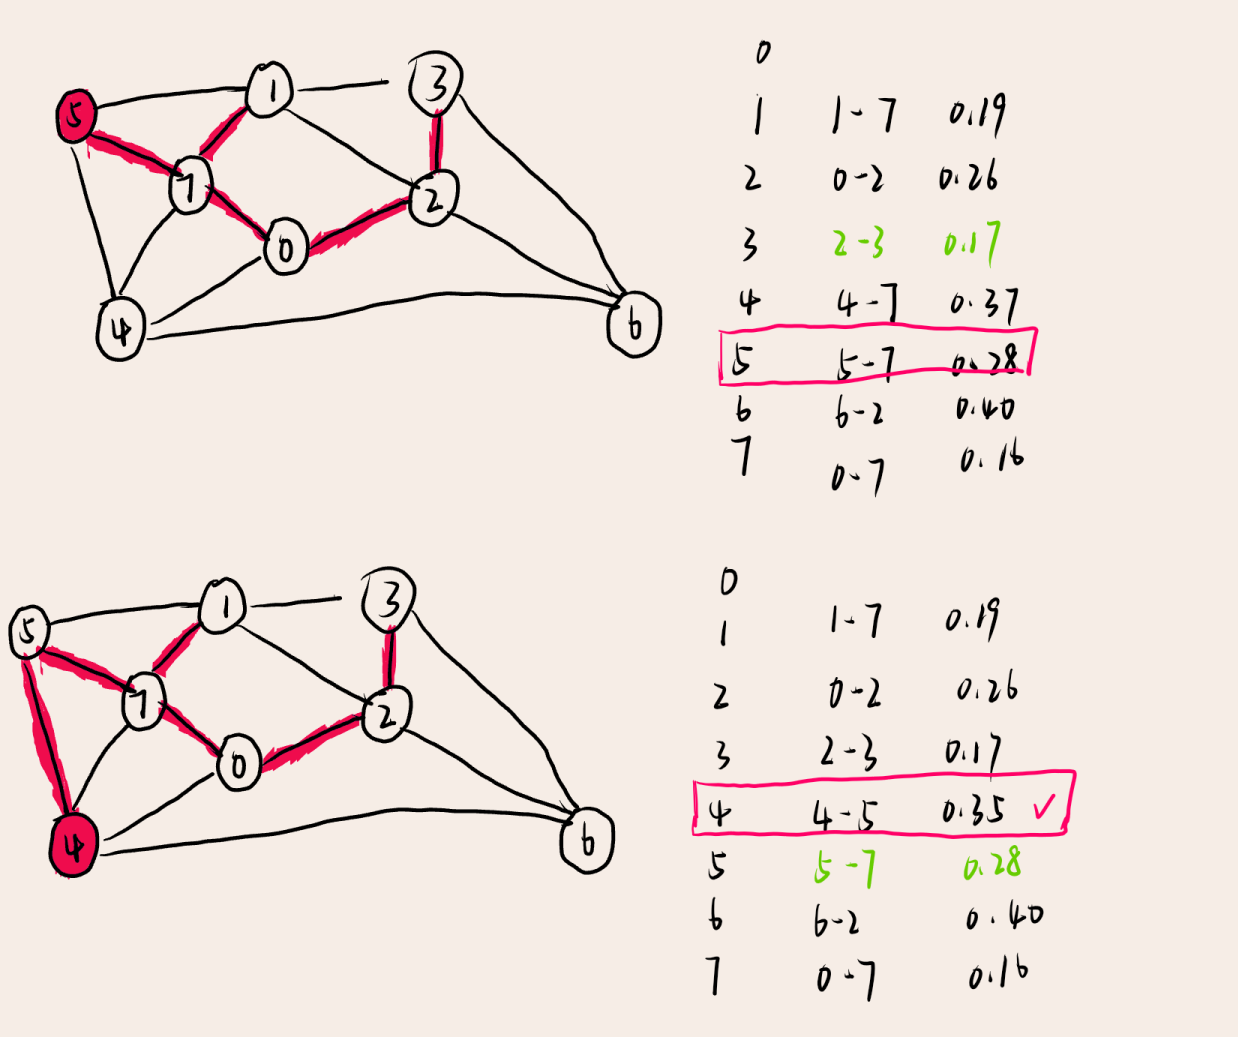 1 3
5
7
2
0
4
6
0
1 1-7 0.19
2 0-2 0.26
3 2-3 0.17
4 4-7 0.37
5 5-7 0.28
6 6-2 0.40
7 0-7 0.16
1 3
5
7
2
0
4
6
0
1 1-7 0.19
2 0-2 0.26
3 2-3 0.17
4 4-5 0.35 ✓
5 5-7 0.28
6 6-2 0.40
7 0-7 0.16